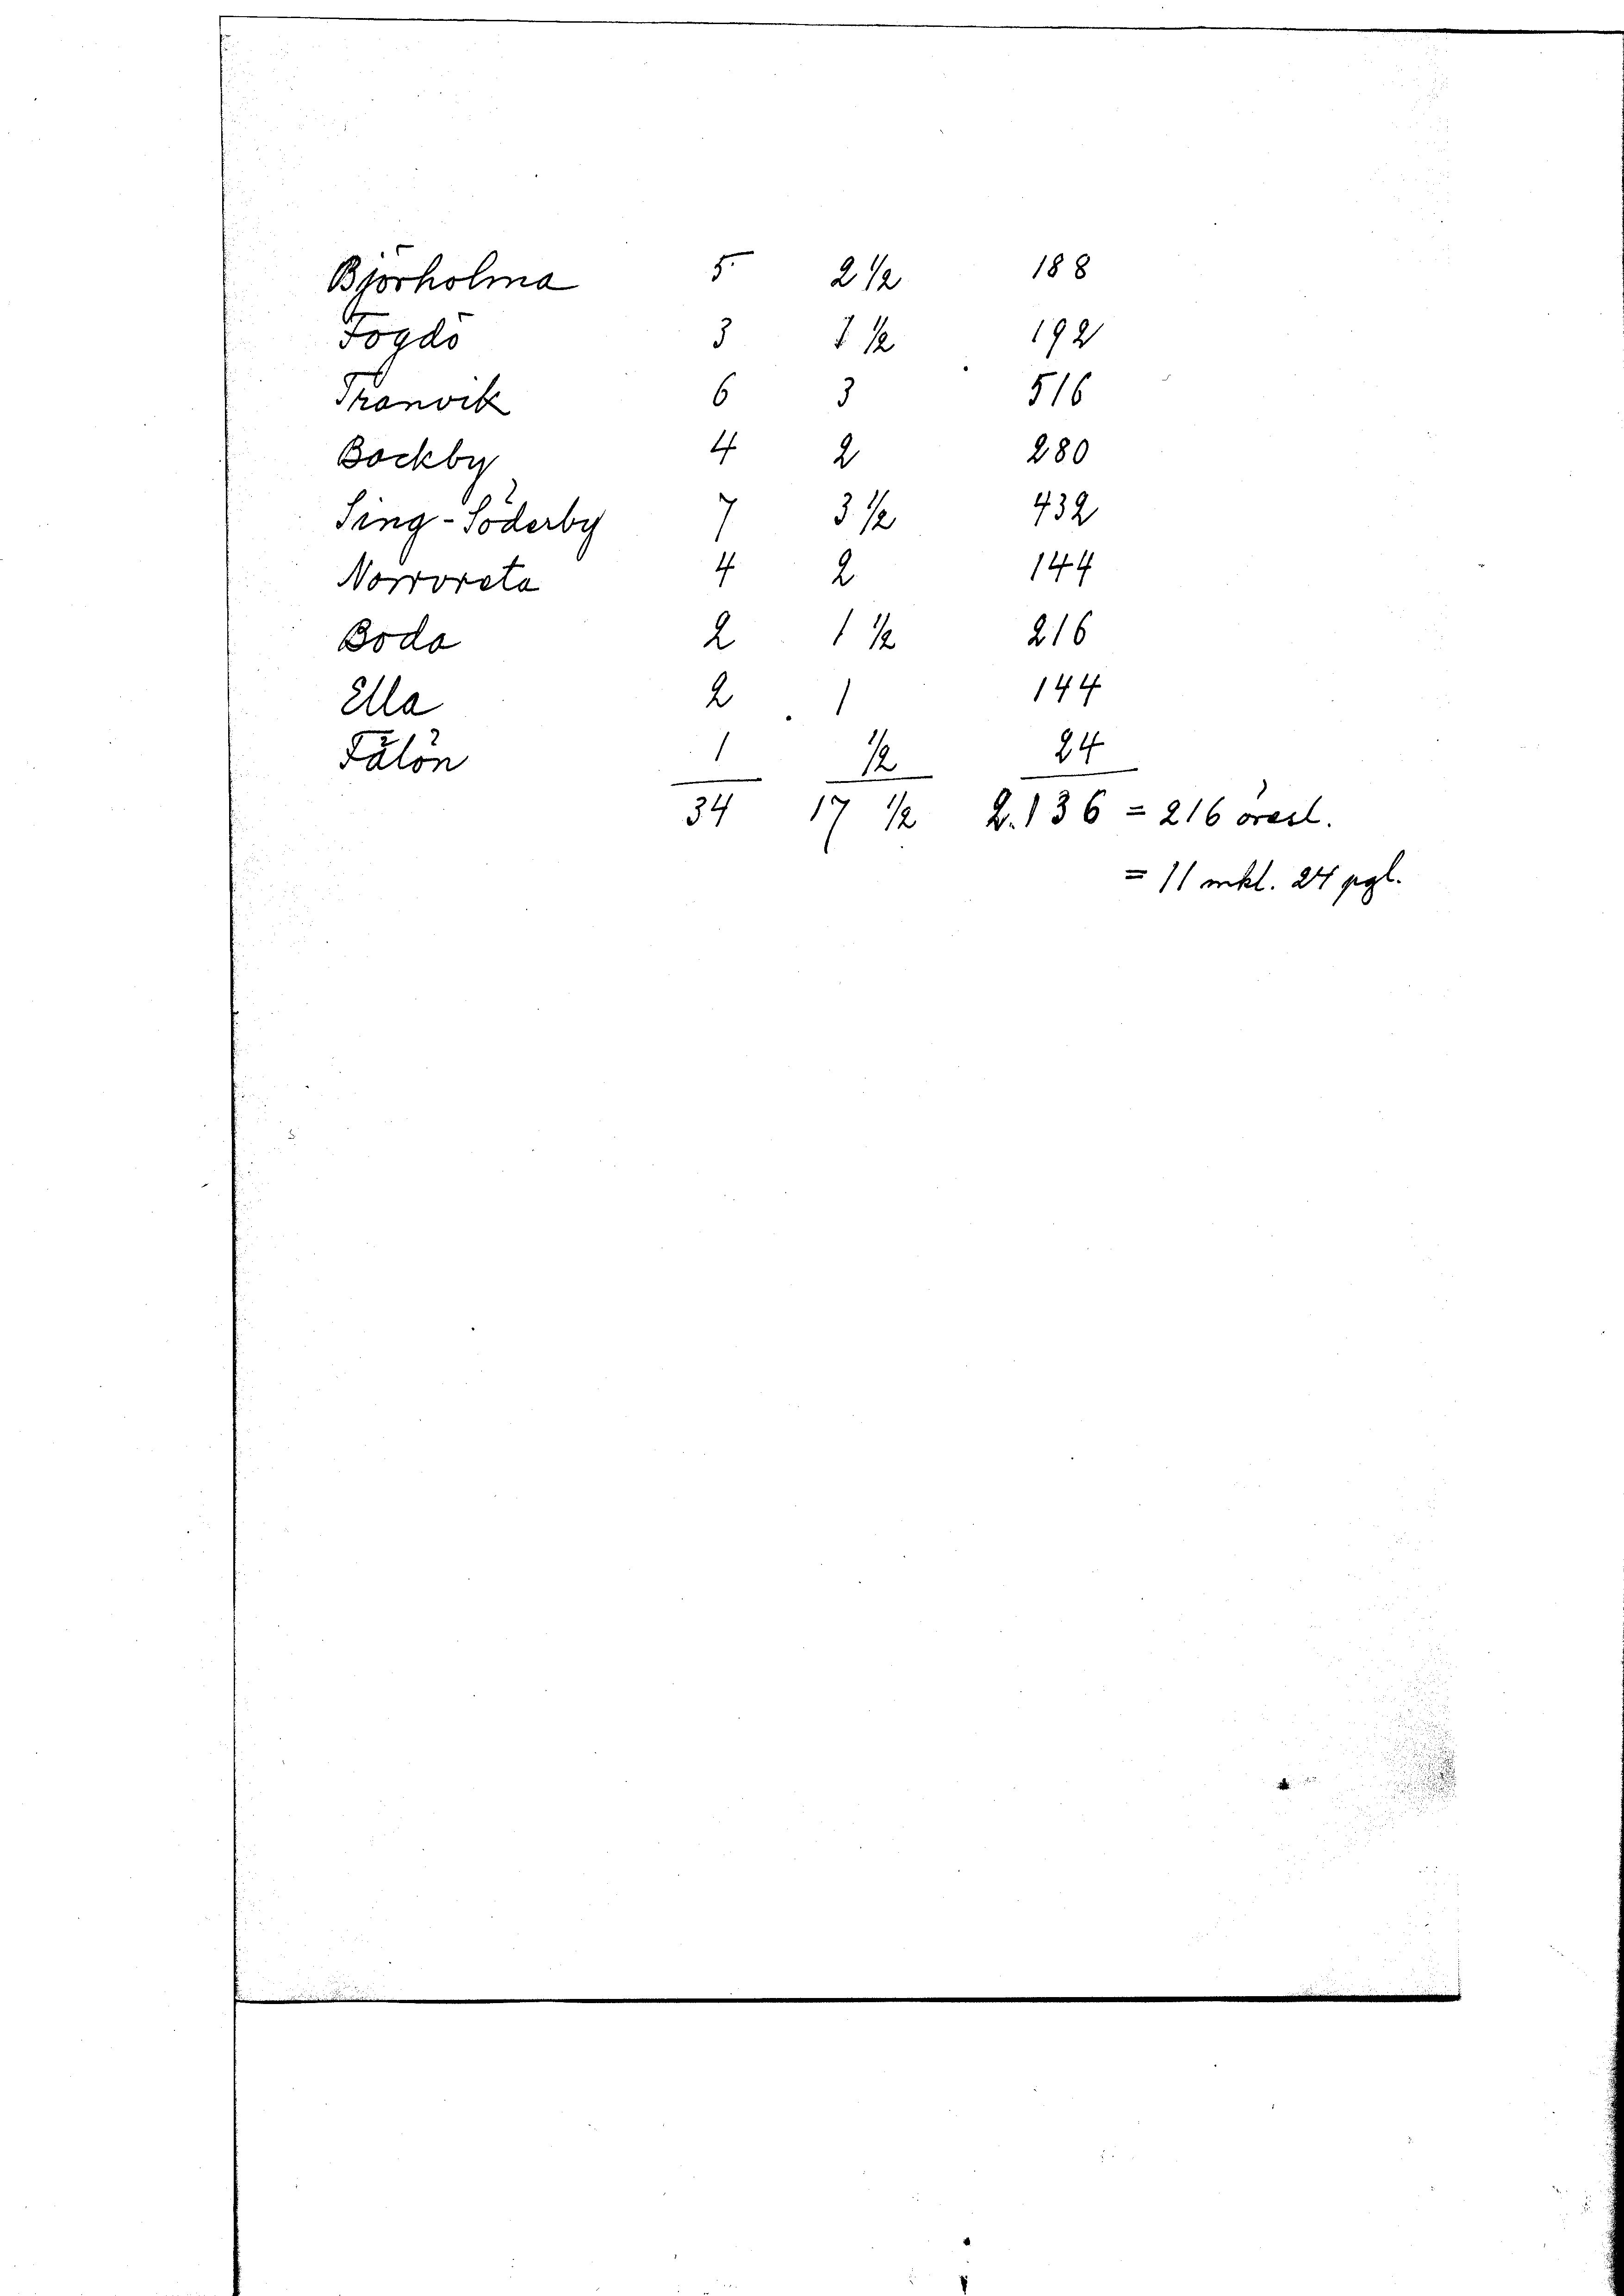 Björholma 5 2 1/2 188
Fogdö 3 1 1/2 192
Tranvik 6 3 516
Backby 4 2 280
Sing-Söderby 7 3 1/2 432
Norrvreta 4 2 144
Boda 2 1 1/2 216
Ella 2 1 144
Fälön 1 1/2 24
34 17 1/2 2.136 = 216 öresl.
= 11 mkl. 24 pgl.